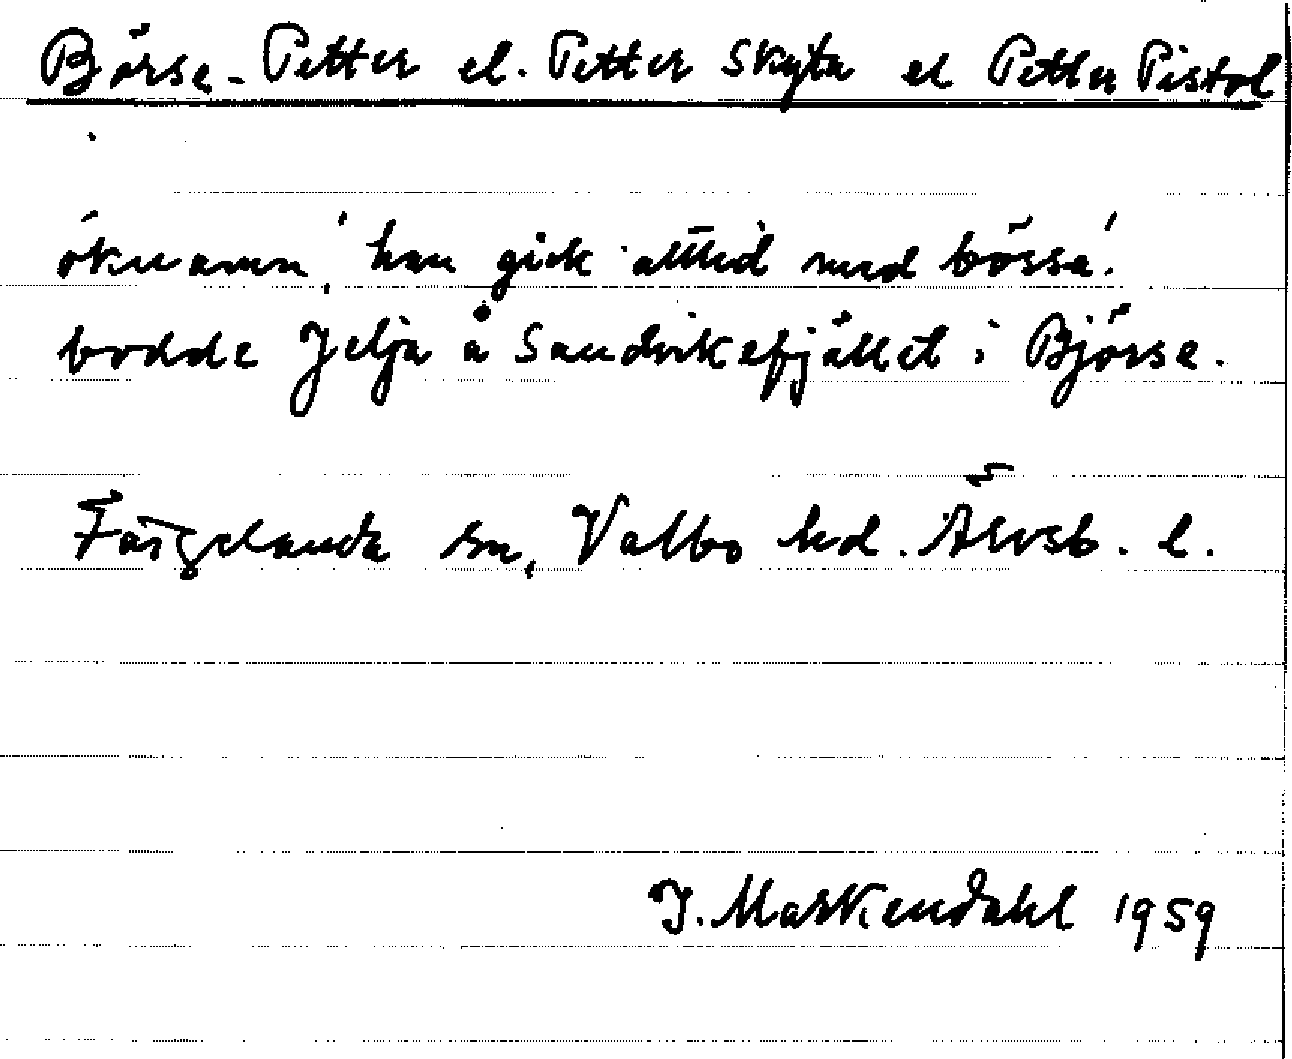 Björse-Petter el. Petter Skytta el Petter Pistol
öknamn, 'han gick alltid med bössa'.
bodde Jelja å Sandvikefjället i Björse.
Färgelanda sn, Valbo hd. Älvsb. l.
J. Maskendahl 1959